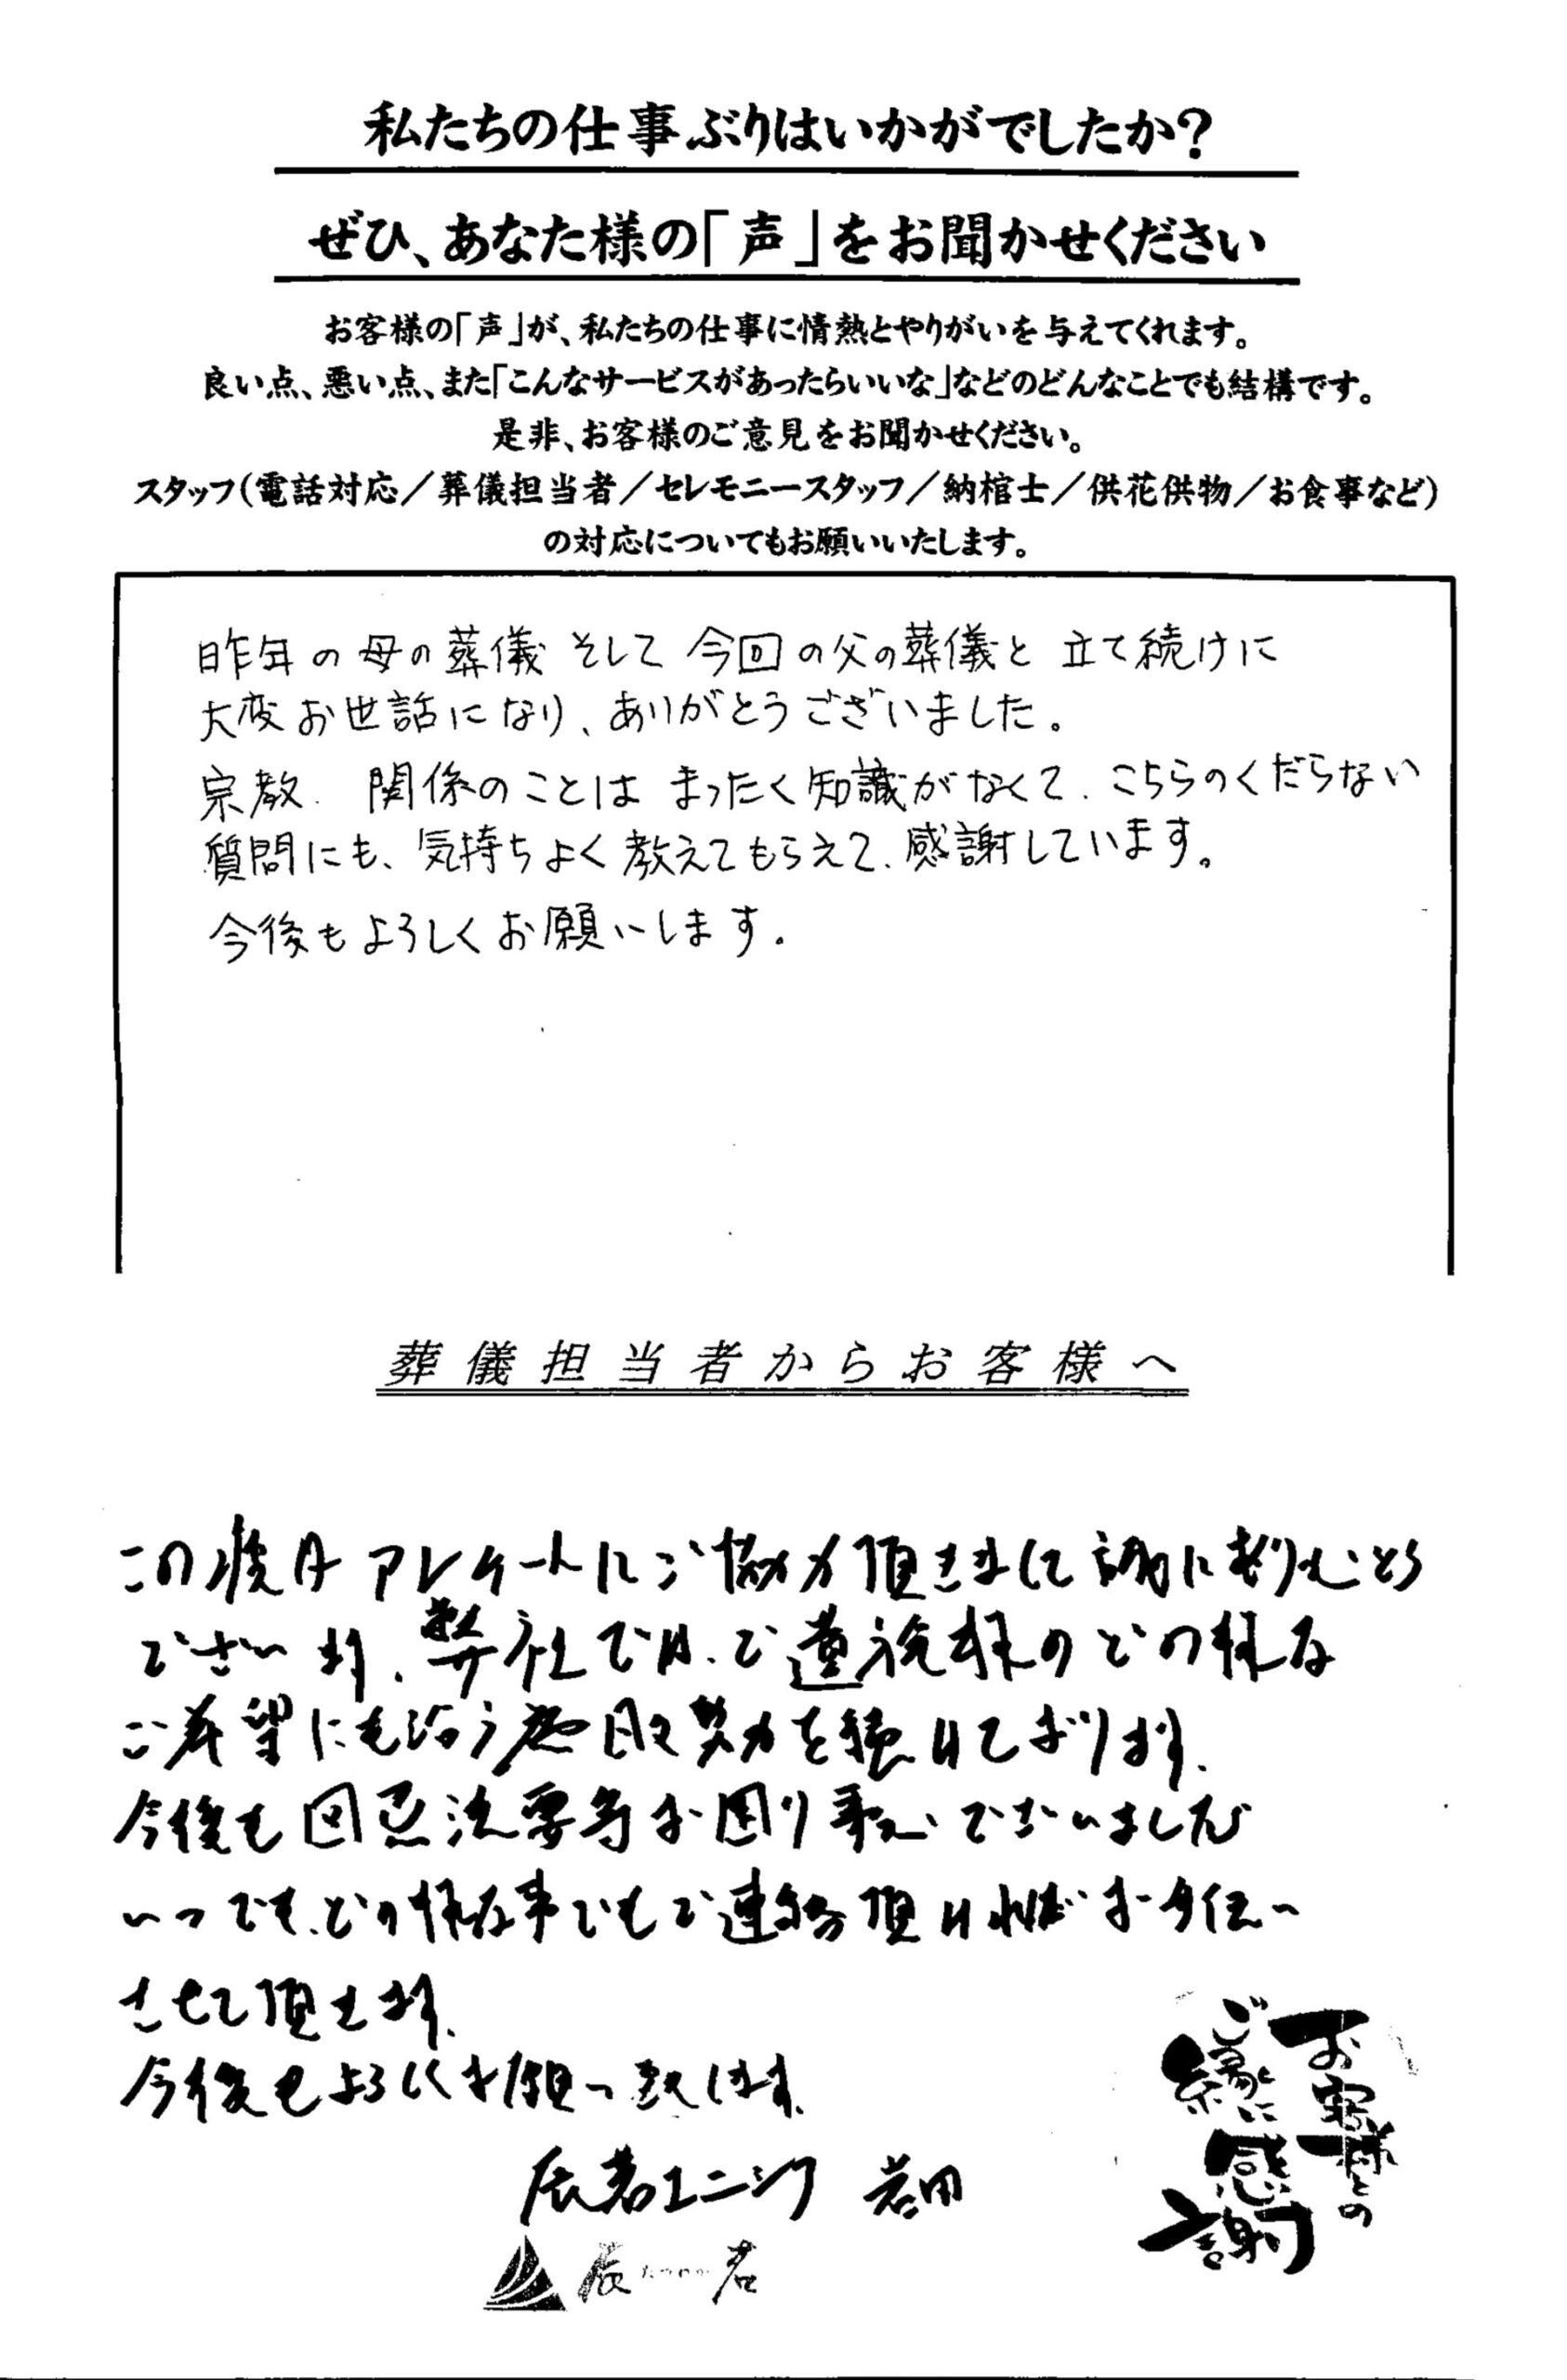 私たちの仕事ぶりはいかがでしたか?
ぜひ、あなた様の「声」をお聞かせください
お客様の「声」が、私たちの仕事に情熱とやりがいを与えてくれます。
良い点、悪い点、また「こんなサービスがあったらいいな」などのどんなことでも結構です。
是非、お客様のご意見をお聞かせください。
スタッフ(電話対応/葬儀担当者/セレモニースタッフ/納棺士/供花供物/お食事など)
の対応についてもお願いいたします。
昨年の母の葬儀 そして 今回の父の葬儀と 立て続けに
大変お世話になり、ありがとうございました。
宗教、関係のことは まったく知識がなくて、こちらのくだらない
質問にも、気持ちよく教えてもらえて、感謝しています。
今後もよろしくお願いします。
葬儀担当者からお客様へ
この度はアンケートにご協力頂きまして誠にありがとう
ございます。弊社では、ご遺族様のどの様な
ご希望にも沿う為日々努力を続けております。
今後も回忌法要等お困り事がございましたら
いつでも、どの様な事でもご連絡頂ければお手伝い
させて頂きます。
今後もよろしくお願い致します。
辰若エニシア 岩田
辰 たつわか 若
お客様との
ご縁に
感謝